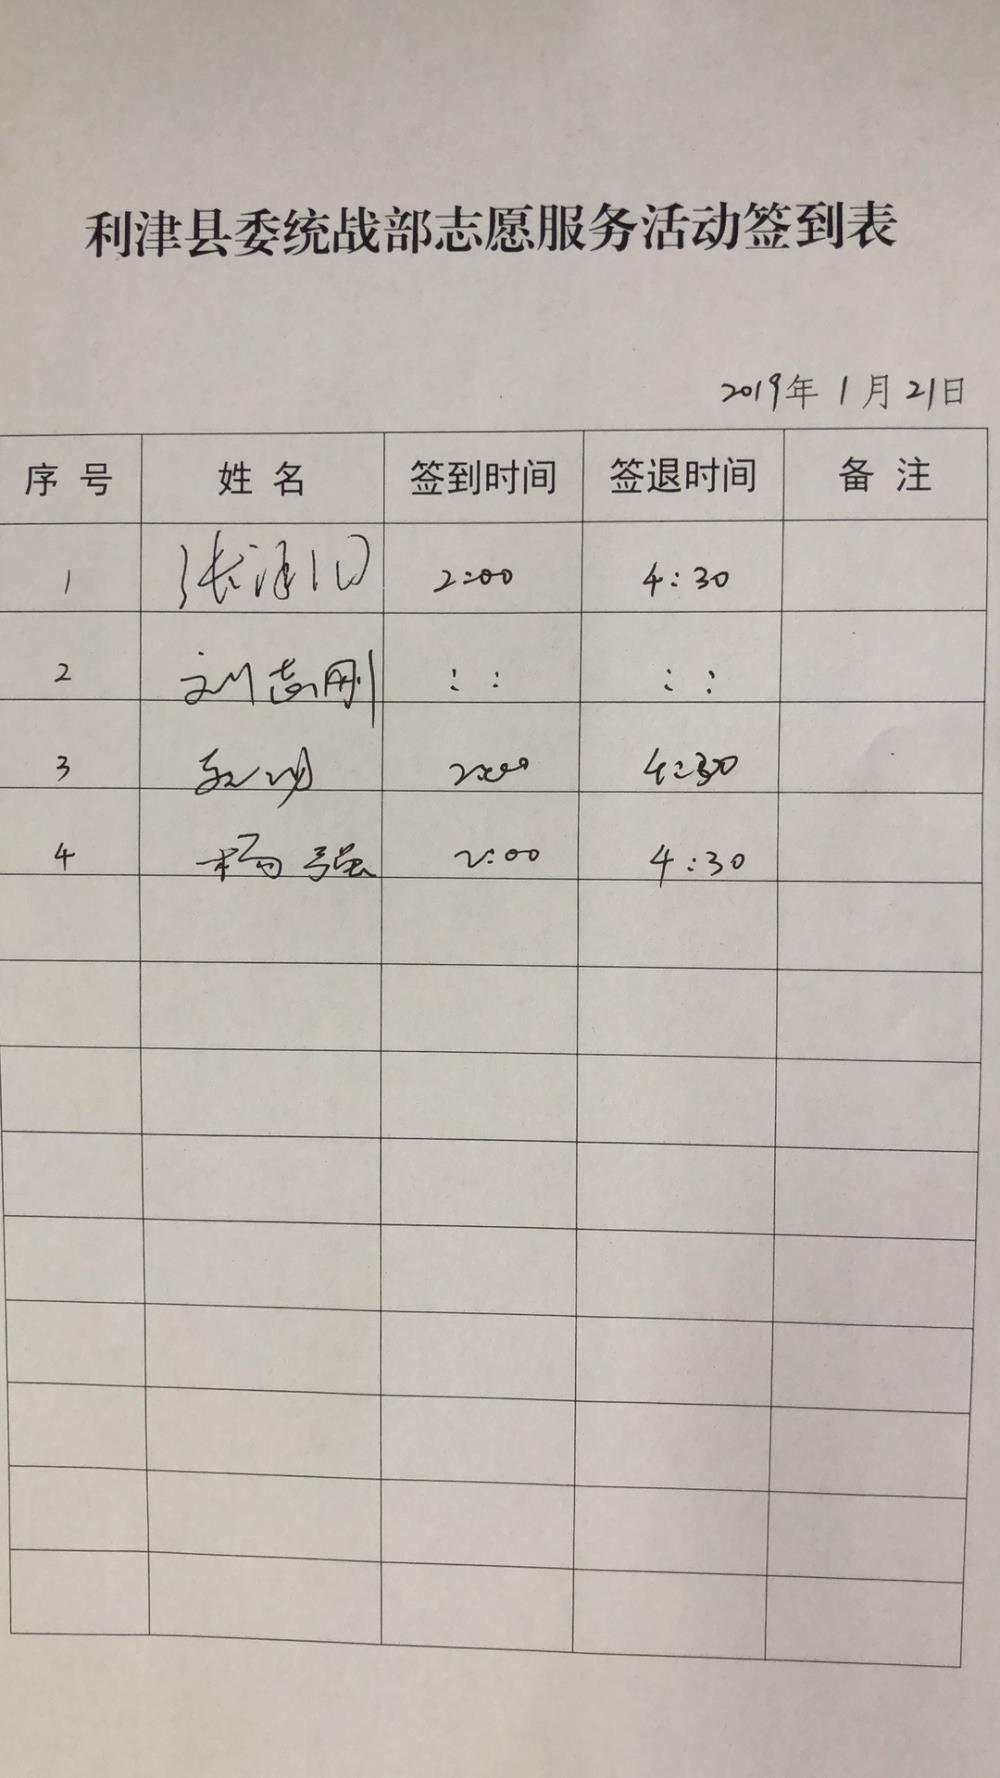 利津县委统战部志愿服务活动签到表
2019年 1月 21日
序号 姓名 签到时间 签退时间 备注
1 张 2:00 4:30
2 刘志刚 : : : :
3 2:00 4:30
4 杨强 2:00 4:30